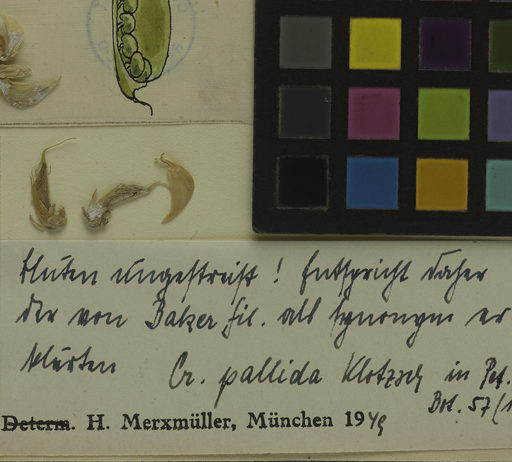 Blüten ungestreift! Entspricht daher
der von Baker fil. als Synonym er
klärten Cr. pallida Klotzsch in Pet.
Bot. 57 (1
Determ. H. Merxmüller, München 1949